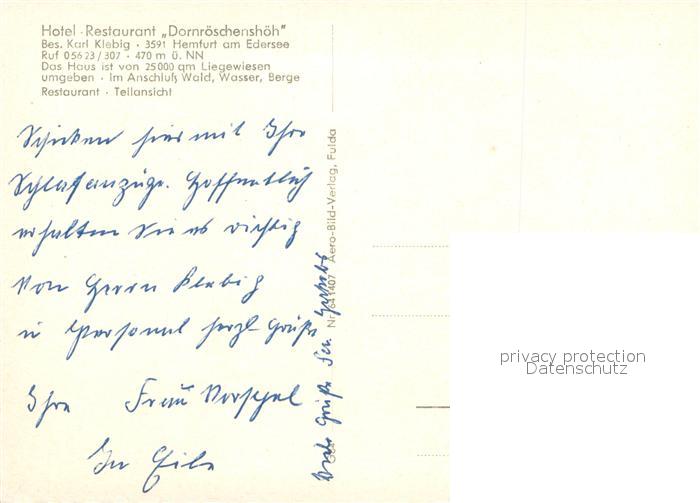 Hotel · Restaurant „Dornröschenshöh"
Bes. Karl Klebig · 3591 Hemfurt am Edersee
Ruf 05623/307 · 470 m ü. NN
Das Haus ist von 25000 qm Liegewiesen
umgeben · Im Anschluß Wald, Wasser, Berge
Restaurant · Teilansicht
Schicken hiermit Ihre
Schlafanzüge. Hoffentlich
erhalten Sie es richtig
Von Herrn Klebig
u Personal herzl Grüße
Ihre Frau
In Eile
Nr. 641407 Aero-Bild-Verlag, Fulda
Viele Grüße
privacy protection
Datenschutz